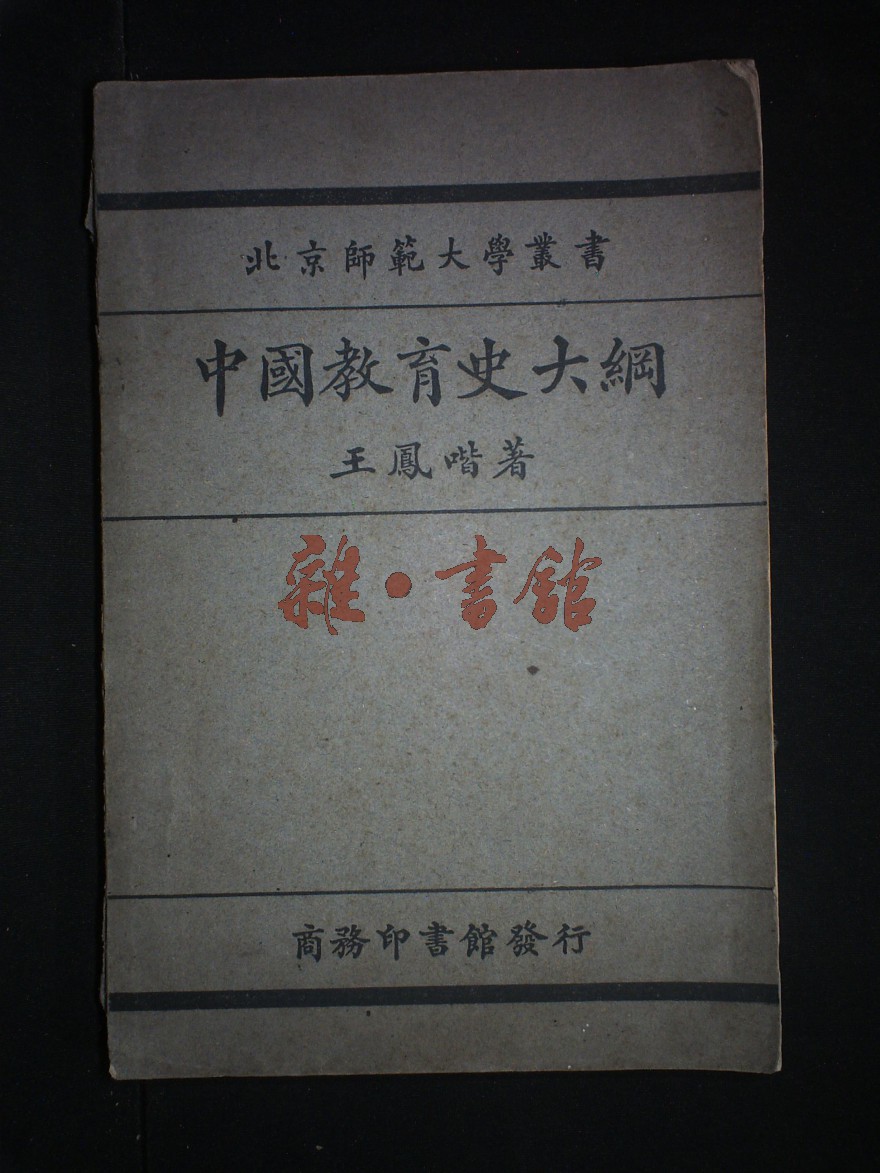 北京師範大學叢書
中國教育史大綱
王鳳喈著
雜·書館
商務印書館發行